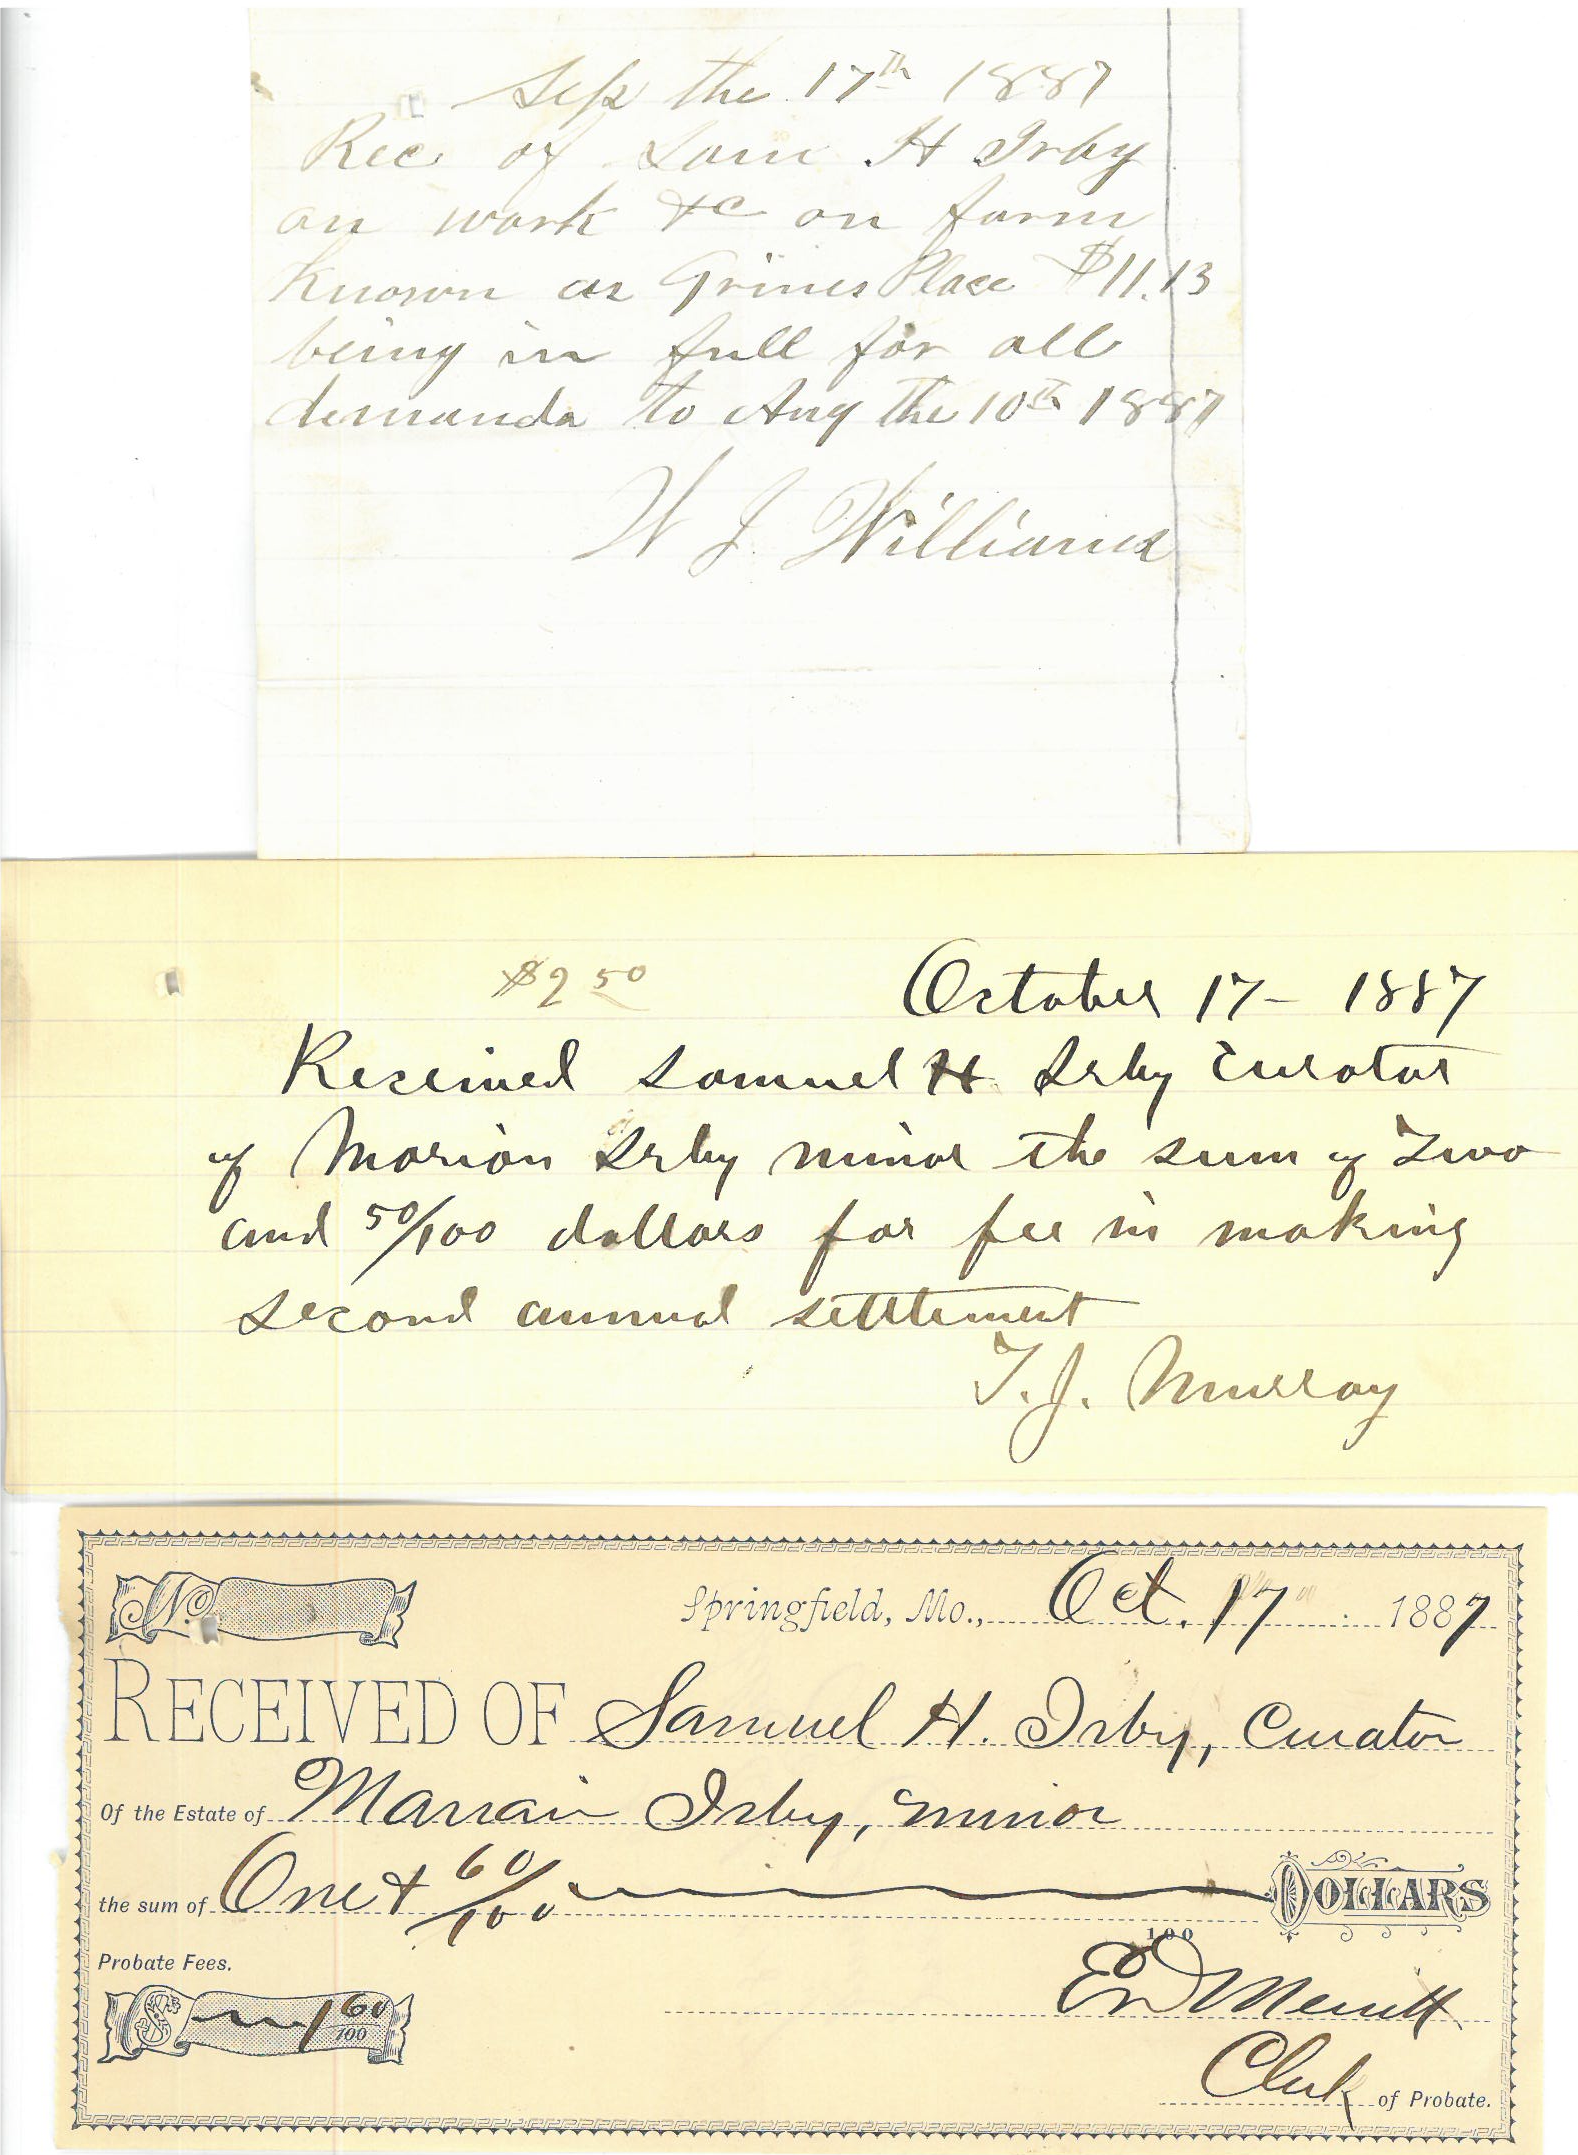 Sep the 17th 1887
Rec of Sam H Irby
on work &c on farm
known as Grimes Place $11.13
being in full for all
demands to Aug the 10th 1887
W J Williams
$2 50 October 17 - 1887
Received Samuel H Irby Curator
of Marion Irby minor the sum of Two
and 50/100 dollars for fee in making
second annual settlement
T. J. Murray
No.
Springfield, Mo., Oct. 17 1887
RECEIVED OF Samuel H. Irby, Curator
Of the Estate of Marion Irby, minor
the sum of One & 60/100 DOLLARS
100
Probate Fees.
$ 1 60/100
Ed Merritt
Clerk of Probate.